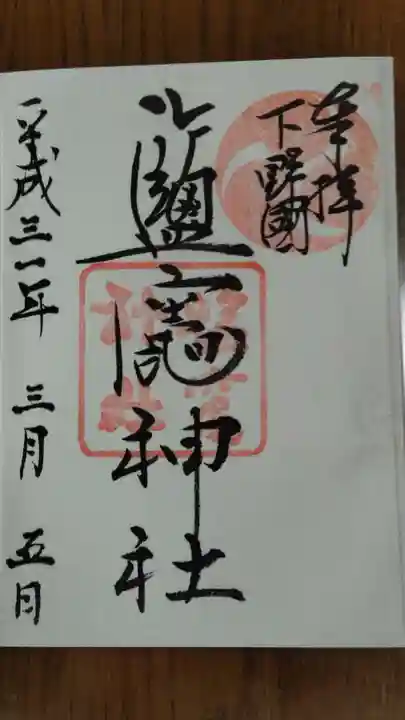 奉拝
下野國
鹽竈神社
平成三一年 三月 五日